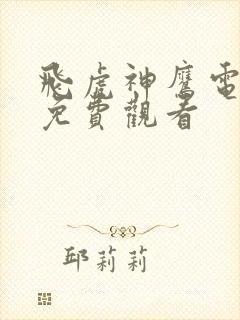 飛虎神鷹電
免費觀看
邱莉莉